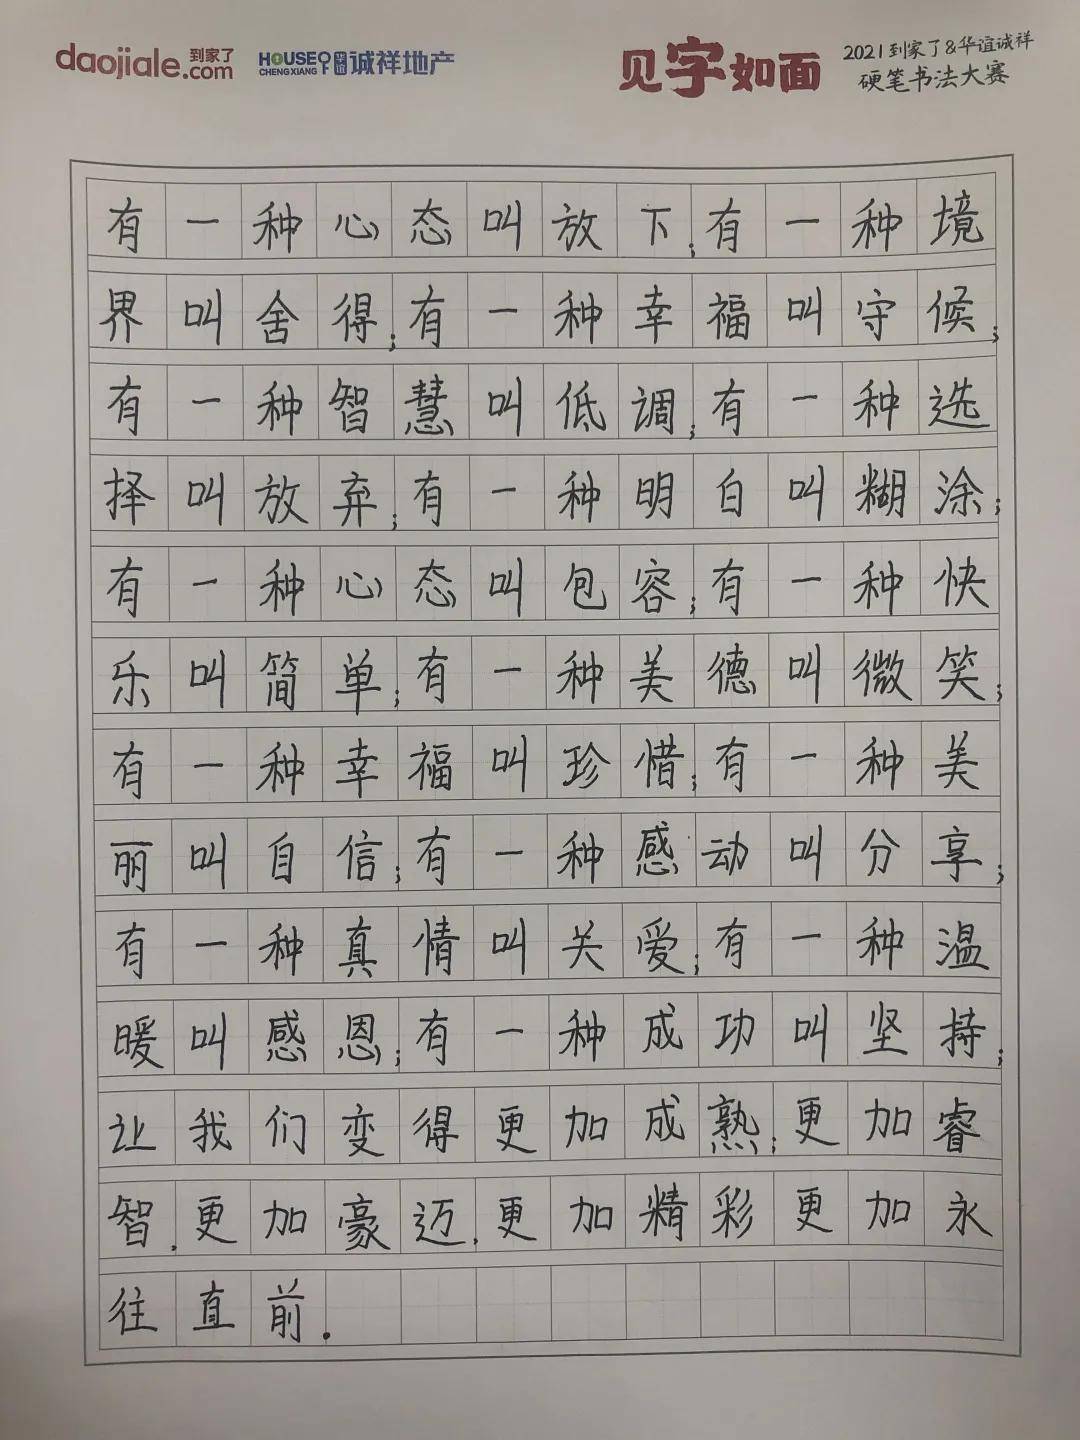 daojiale.com 到家了 HOUSE CHENGXIANG 诚祥地产
见字如面 2021到家了&华谊诚祥
硬笔书法大赛
有一种心态叫放下;有一种境
界叫舍得;有一种幸福叫守候;
有一种智慧叫低调;有一种选
择叫放弃;有一种明白叫糊涂;
有一种心态叫包容;有一种快
乐叫简单;有一种美德叫微笑;
有一种幸福叫珍惜;有一种美
丽叫自信;有一种感动叫分享;
有一种真情叫关爱;有一种温
暖叫感恩;有一种成功叫坚持;
让我们变得更加成熟;更加睿
智.更加豪迈.更加精彩更加永
往直前.